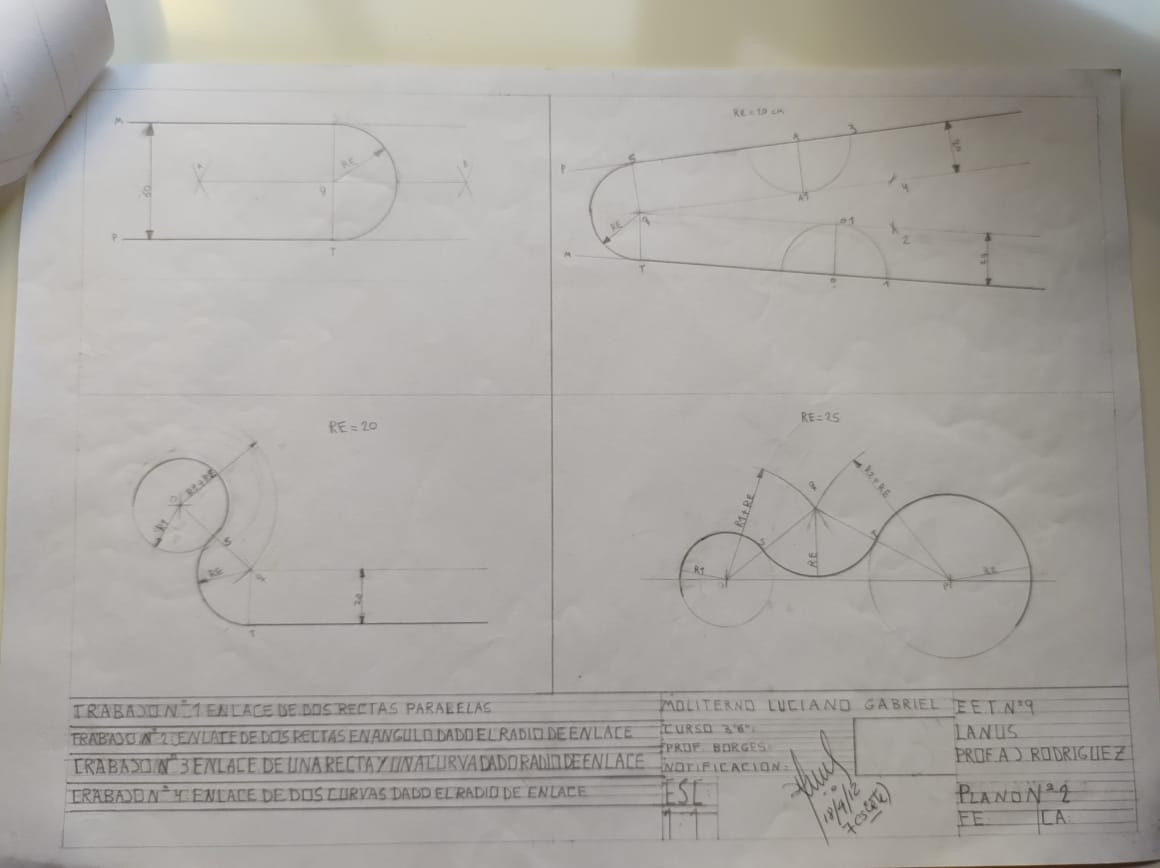 M
A
RE
B
Q
50
P
T
RE=20 cm
P
S
A
3
20
4
A1
Q
RE
M
T
01
2
20
RE=20
R1+RE
O
R1
S
RE
Q
20
T
RE=25
R1+RE
Q
R2+RE
S
RE
R1
R2
TRABAJO Nº 1 ENLACE DE DOS RECTAS PARALELAS
TRABAJO Nº 2: ENLACE DE DOS RECTAS EN ANGULO DADO EL RADIO DE ENLACE
TRABAJO Nº 3 ENLACE DE UNA RECTA Y UNA CURVA DADO RADIO DE ENLACE
TRABAJO Nº 4: ENLACE DE DOS CURVAS DADO EL RADIO DE ENLACE
MOLITERNO LUCIANO GABRIEL
CURSO 3º6º:
PROF. BORGES:
NOTIFICACION:
ESC
1:1
18/4/12
7 (SIETE)
E.E.T.Nº9
LANUS
PROF A.J RODRIGUEZ
PLANO Nº 2
FE:
CA: